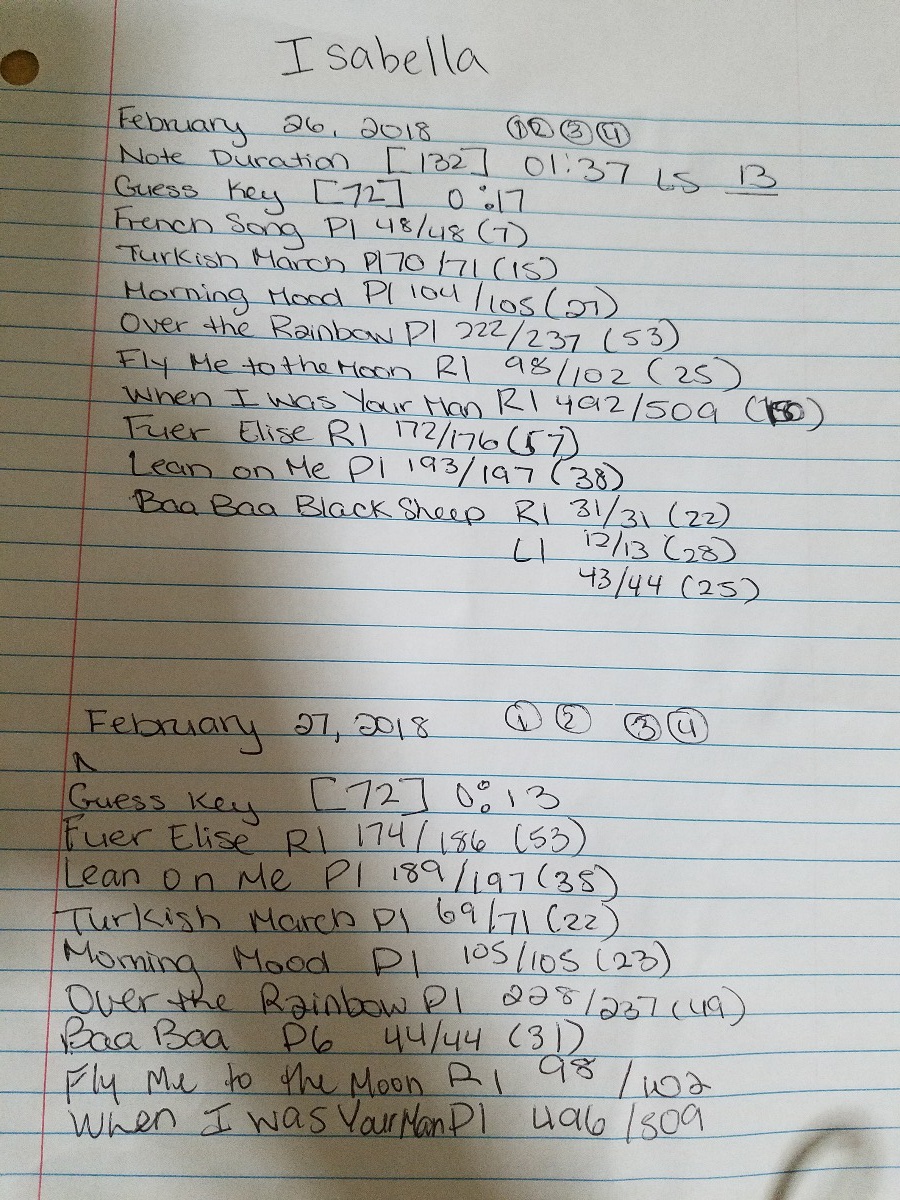 Isabella
February 26, 2018 ① ② ③ ④
Note Duration [132] 01:37 LS 13
Guess Key [72] 0:17
French Song P1 48/48 (7)
Turkish March P1 70/71 (15)
Morning Mood P1 104/105 (27)
Over the Rainbow P1 222/237 (53)
Fly Me to the Moon R1 98/102 (25)
When I was Your Man R1 492/509
Fuer Elise R1 172/176 (57)
Lean on Me P1 193/197 (38)
Baa Baa Black Sheep R1 31/31 (22)
L1 12/13 (28)
43/44 (25)
February 27, 2018 ① ② ③ ④
Guess Key [72] 0:13
Fuer Elise R1 174/186 (53)
Lean on Me P1 189/197 (38)
Turkish March P1 69/71 (22)
Morning Mood P1 105/105 (23)
Over the Rainbow P1 228/237 (49)
Baa Baa P6 44/44 (31)
Fly Me to the Moon R1 98/102
When I was Your Man P1 496/509